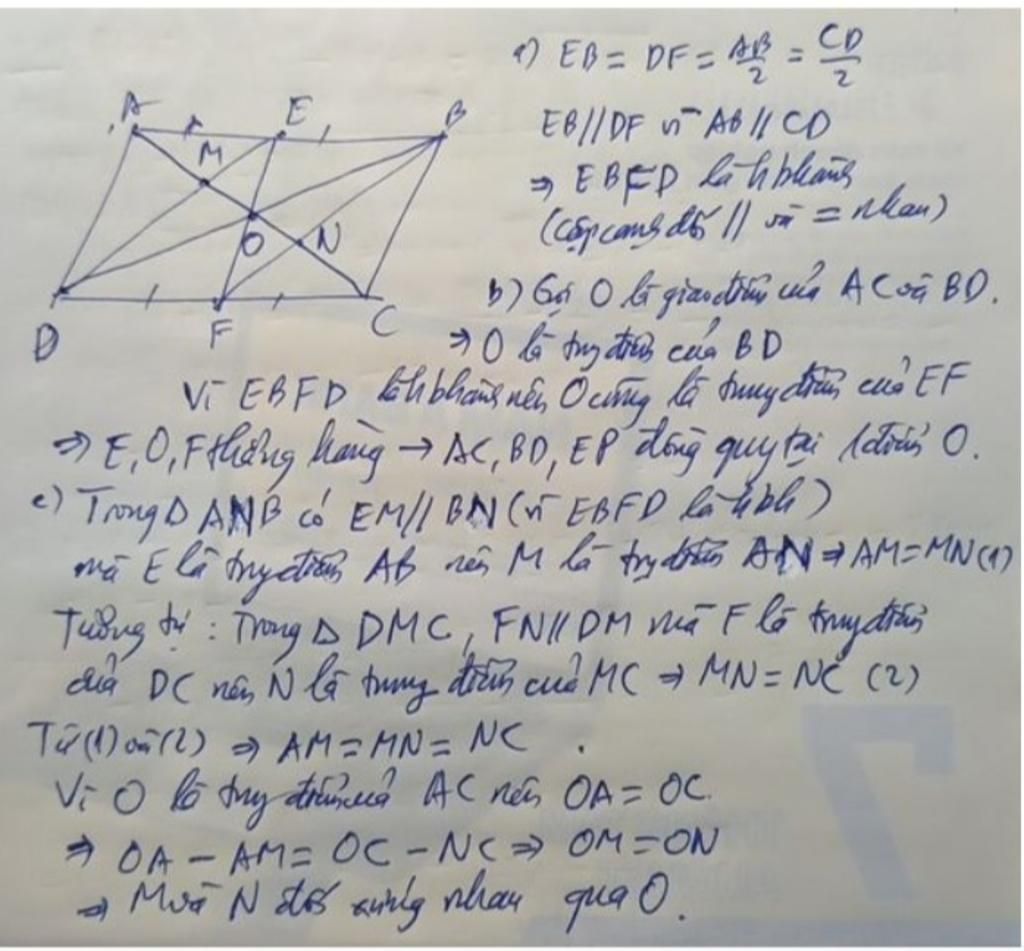 a) EB = DF = AB/2 = CD/2
A E B
EB // DF vì AB // CD
M
⇒ EBFD là hbhành
(cặp cạnh đối // và = nhau)
O N
b) Gọi O là giao điểm của AC và BD.
D F C
⇒ O là trg điểm của BD
Vì EBFD là hbhành nên O cũng là trung điểm của EF
⇒ E, O, F thẳng hàng → AC, BD, EF đồng quy tại 1 điểm O.
c) Trong Δ ANB có EM // BN (vì EBFD là hbh)
mà E là trg điểm AB nên M là trg điểm AN ⇒ AM = MN (1)
Tương tự : Trong Δ DMC, FN // DM mà F là trung điểm
của DC nên N là trung điểm của MC ⇒ MN = NC (2)
Từ (1) và (2) ⇒ AM = MN = NC .
Vì O là trg điểm của AC nên OA = OC.
⇒ OA − AM = OC − NC ⇒ OM = ON
⇒ M và N đối xứng nhau qua O.